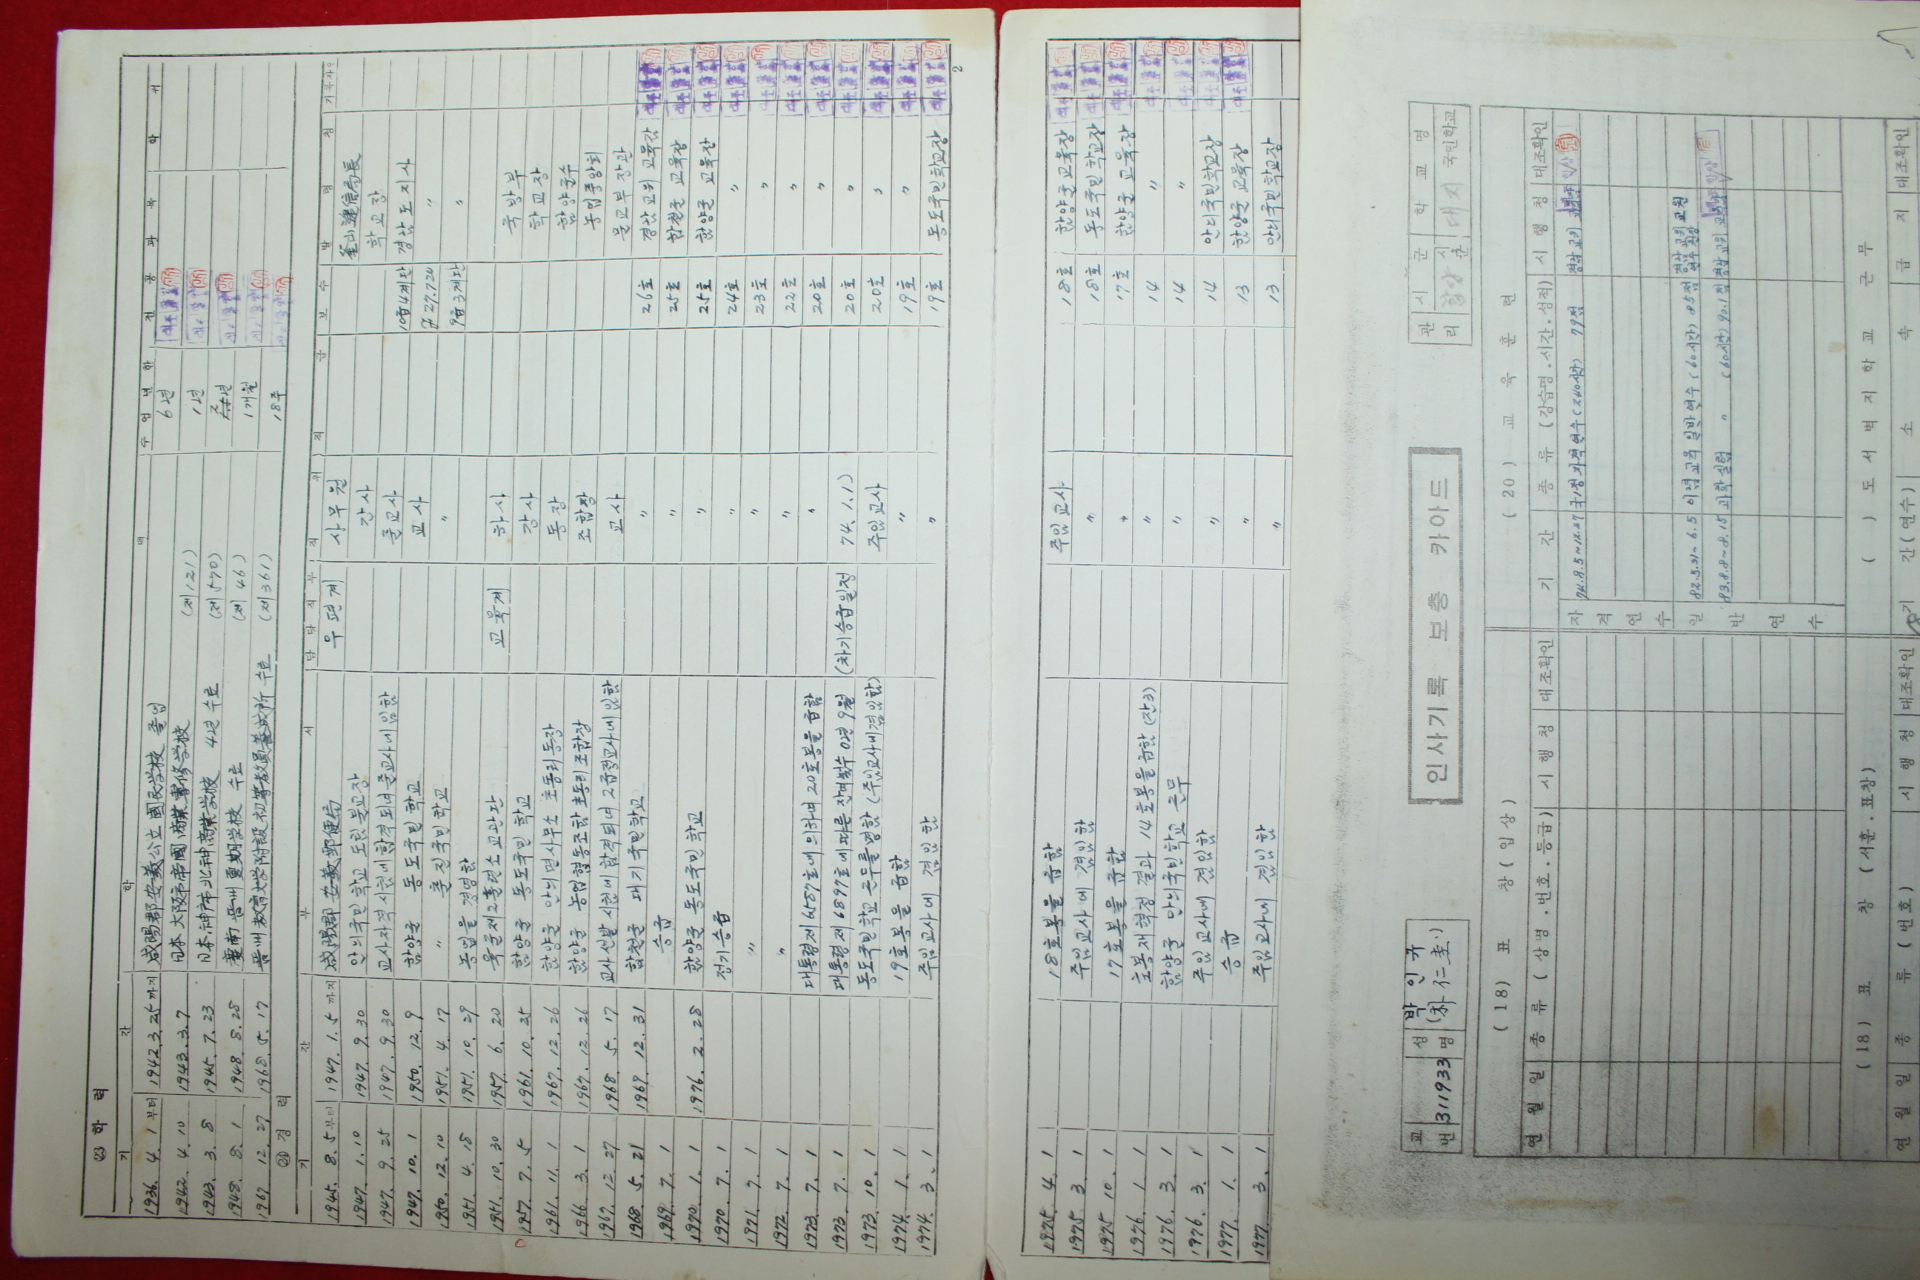 ㉓ 학 력
기 간 학 력 수 업 년 한 전 공 과 목 학 위
1936. 4. 1 부터 1942. 3. 25 까지 咸陽郡 安義公立國民学校 졸업 6년
1942. 4. 10 1943. 3. 7 日本 大阪市 帝國商業專修学校 (제121) 1년
1943. 3. 8 1945. 7. 23 日本 神戸市 北神商業学校 4년 수료 (제570)
1948. 8. 1 1948. 8. 28 慶南 晋州 夏期学校 수료 (제46) 1개월
1967 12. 27 1968. 5. 17 晋州 教育大学附設 初等教員養成所 수료 (제361) 18주
㉔ 경 력
기 간 부 서 담 당 직 무 직 위 직 급 보 수 발 령 청
1945. 8. 5부터 1947. 1. 5까지 咸陽郡 安義郵便局 우편계 사무원 釜山遞信局長
1947. 1. 10 1947. 9. 30 안의국민학교 도린분교장 강사 학교장
1947. 9. 25 1947. 9. 30 교사자격시험에 합격되녀 준교사에 임함 준교사 10급4계단 경남도지사
1947. 10. 1 1950. 12. 9 함양군 동도국민학교 교사 〃
1950. 12. 10 1951. 4. 17 〃 국민학교 〃 9급3계단 〃
1951. 4. 18 1951. 10. 29 농업을 경영함
1951. 10. 30 1957. 6. 20 육군제2훈련소교관단 교육계 하사 국방부
1957. 7. 5 1961. 10. 25 함양군 동도국민학교 강사 학교장
1961. 11. 1 1967. 12. 26 함양군 안의면사무소 초동리동장 동장 함양군수
1966. 3. 1 1967. 12. 26 함양군 농업협동조합 초동리조합장 조합장 농업중앙회
1967. 12. 27 1968. 5. 17 교사선발시험에 합격되녀 2급정교사에 임함 교사 문교부장관
1968. 5. 21 1969. 12. 31 합천군 대기국민학교 〃 26호 경남교위교육감
1969. 7. 1 승급 〃 25호 합천군 교육장
1970. 1. 1 1976. 2. 28 함양군 동도국민학교 〃 25호 함양군 교육장
1970. 7. 1 정기승급 〃 24호 〃
1971. 7. 1 〃 〃 23호 〃
1972. 7. 1 〃 〃 22호 〃
1973. 7. 1 대통령제6587호에 의하녀 20호봉을 급함 〃 20호 〃
1973. 7. 1 대통령제6897호에 따른 잔여월수 0년 9월 (차기승급일정 74.1.1) 20호 〃
1973. 10. 1 동도국민학교 근무를 명함 (주임교사에 겸임함) 주임교사 20호 〃
1974. 1. 1 19호봉을 급함 〃 19호 〃
1974. 3. 1 주임교사에 겸임함 〃 19호 동도국민학교장
2
1975. 4. 1 18호봉을 급함 주임교사 18호 함양군교육장
1975. 3. 1 주임교사에 겸임함 〃 18호 동도국민학교장
1975. 10. 1 17호봉을 급함 〃 17호 함양군 교육장
1976. 1. 1 호봉재책정 결과 14호봉을 급함 (잔3) 〃 14 〃
1976. 3. 1 함양군 안의국민학교 근무 〃 14 〃
1976. 3. 1 주임교사에 겸임함 〃 14 안의국민학교장
1977. 1. 1 승급 〃 13 함양군교육장
1977. 3. 1 주임교사에 겸임함 〃 13 안의국민학교장
교번 311933 성명 박인규 (朴仁圭)
인사기록 보충 카아드
관리 시 군 학 교 명
함양 시군 대지 국민학교
(18) 표 창 (입상)
연 월 일 종 류 (상명.번호.등급) 시 행 청 대조확인
(20) 교 육 훈 련
기 간 종 류 (강습명.시간.성적) 시 행 청 대조확인
자격연수
74.8.5~12.27 1정자격연수 (240시간) 77점 경남교위
일반연수
82.5.31~6.5 이념교육 일반연수 (60시간) 85점
83.8.8~8.15 과학실험 〃 (60시간) 90.1점 경남교위
(18) 표 창 (서훈.표창)
연 월 일 종 류 (번호) 시 행 청 대조확인
( ) 도 서 벽 지 학 교 근 무
기 간 (연수) 소 속 급 지 대조확인